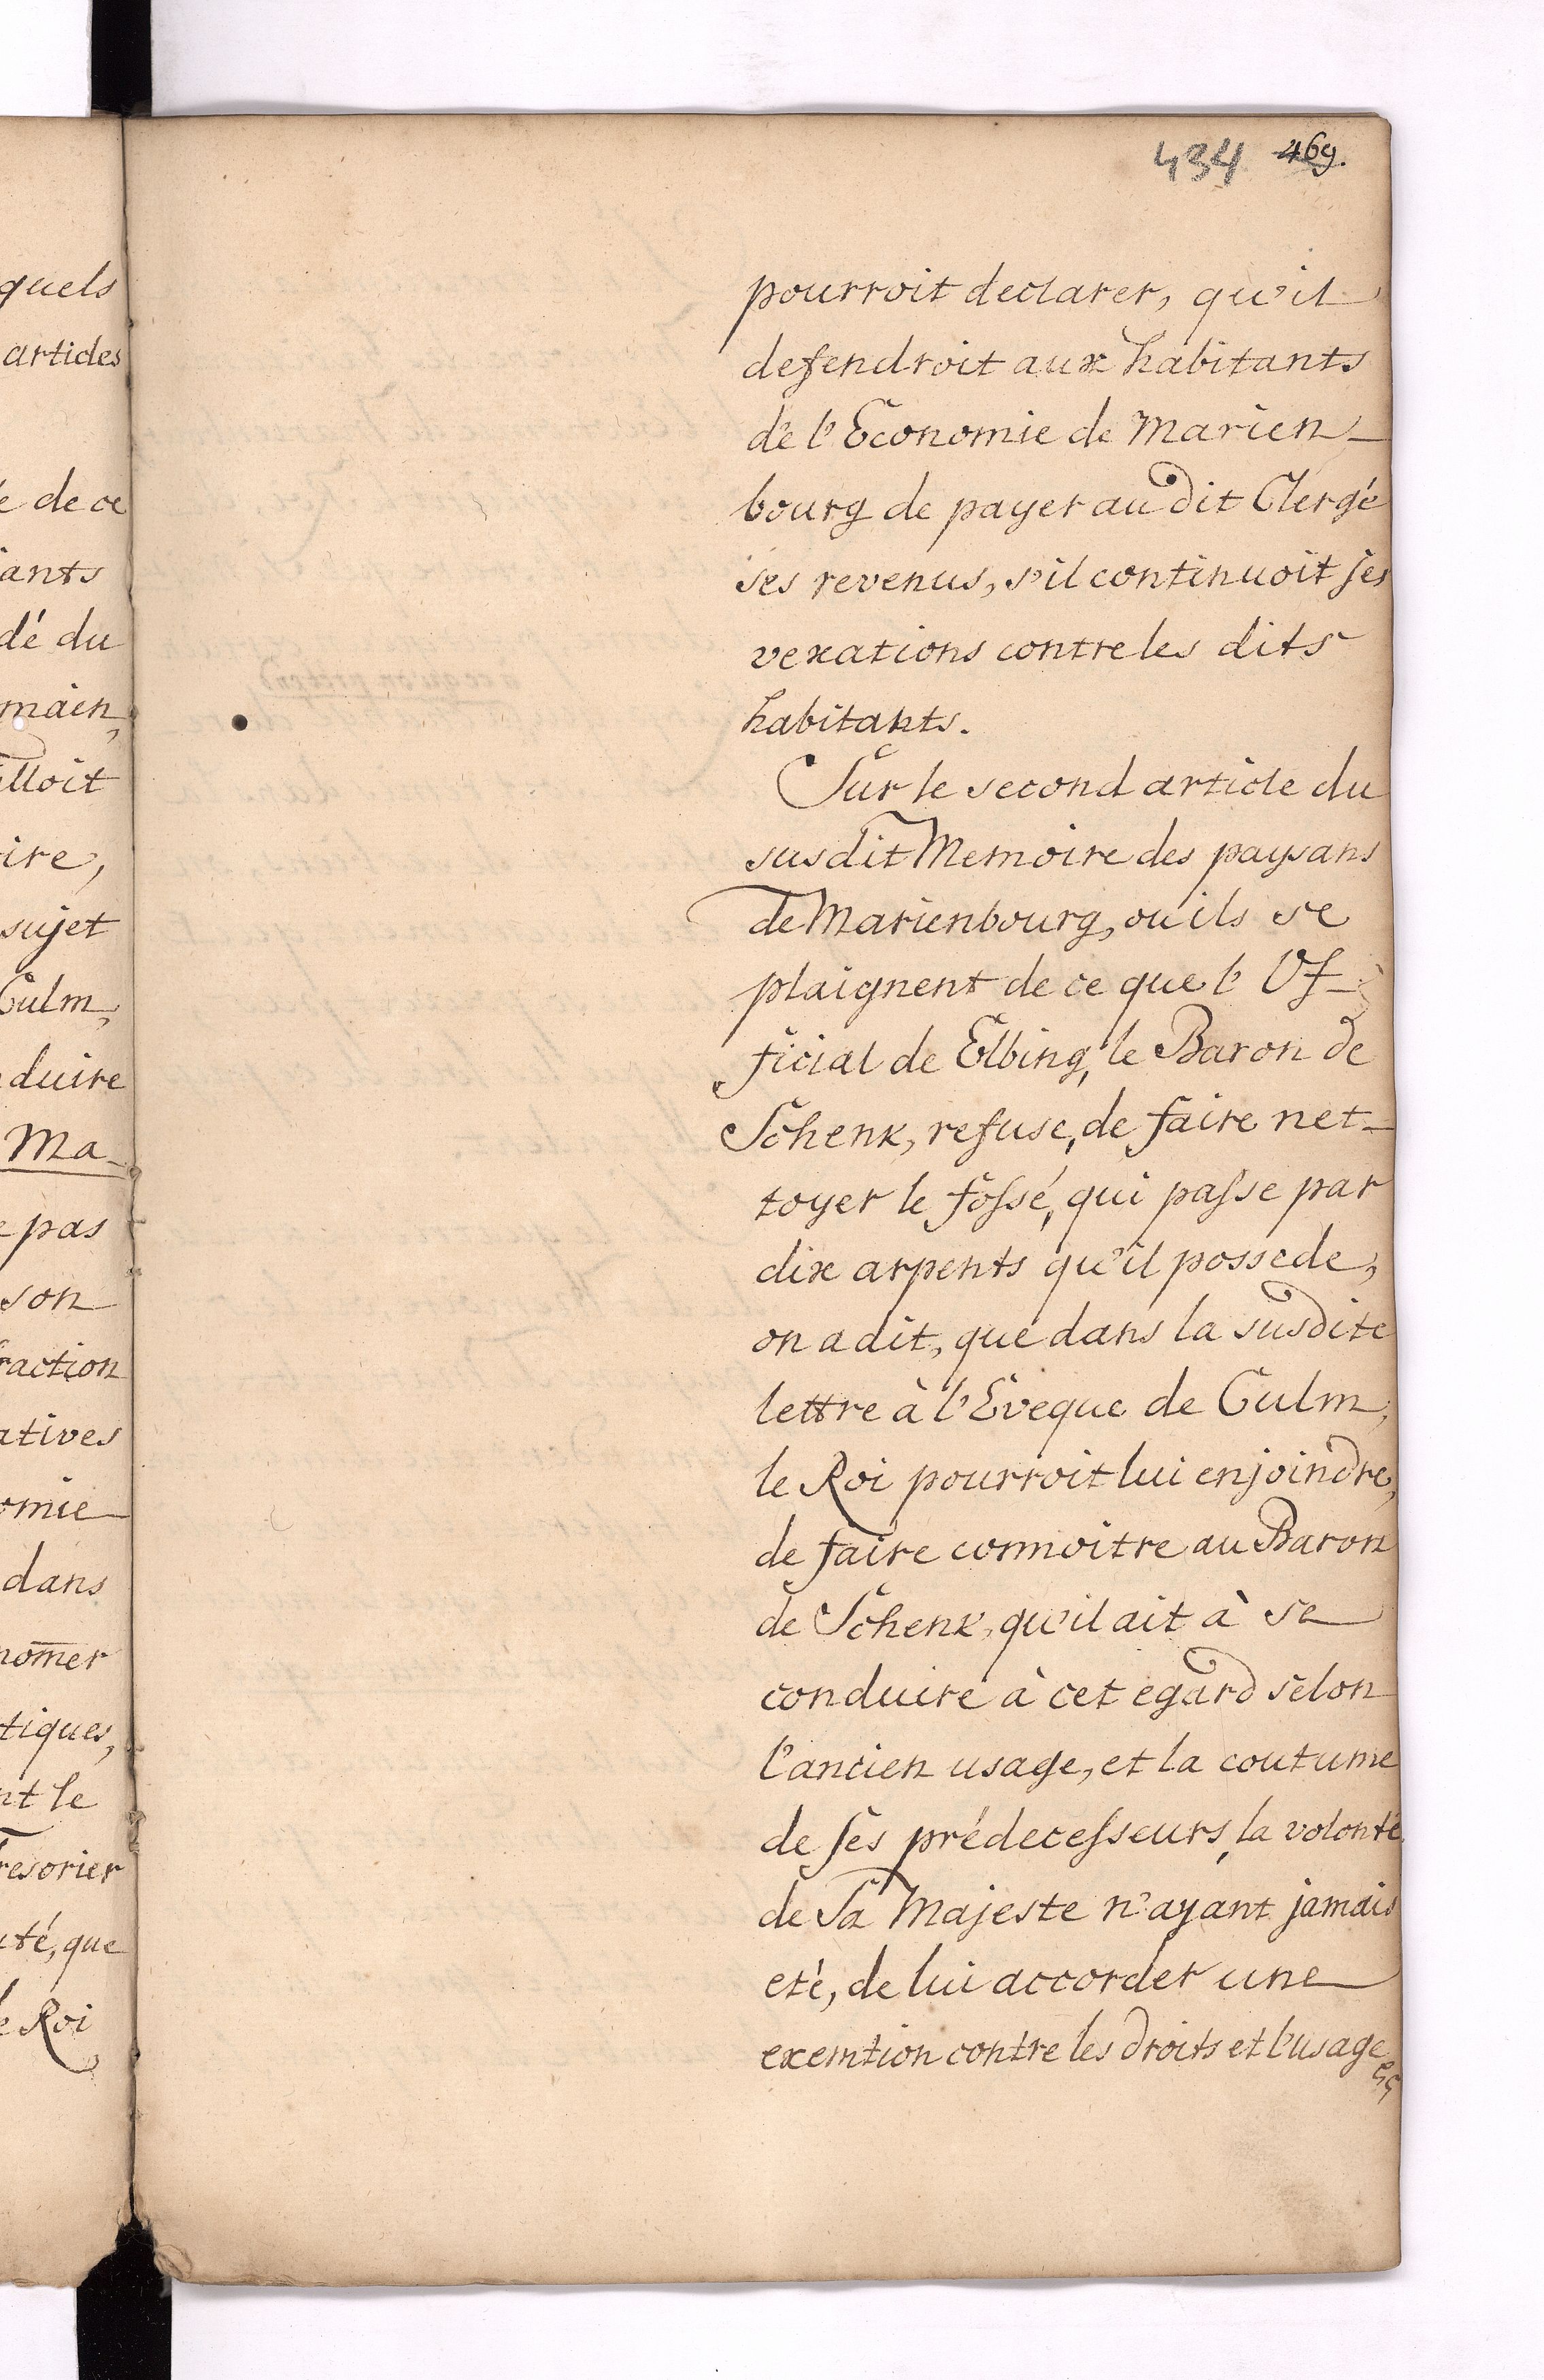 quels
articles
de ce
ants
dé du
main,
lloit
ire,
sujet
Culm,
duire
Ma-
pas
son
action
atives
omie
dans
nom̅er
tiques,
nt le
Tresorier
uté, que
Roi
434 469.
pourroit declarer, qu'il
defendroit aux habitants
de l'Economie de Marien-
bourg de payer au dit Clergé
ses revenus, s'il continuoit ses
vexations contre les dits
habitants.
Sur le second article du
susdit Memoire des paysans
de Marienbourg, ou ils se
plaignent de ce que l'Of-
ficial de Elbing, le Baron de
Schenk, refuse, de faire net-
toyer le fossé, qui passe par
dix arpents qu'il possede,
on a dit, que dans la susdite
lettre à l'Eveque de Culm,
le Roi pourroit lui enjoindre,
de faire connoitre au Baron
de Schenk, qu'il ait à se
conduire à cet egard selon
l'ancien usage, et la coutume
de ses prédecesseurs, la volonté
de Sa Majeste n'ayant jamais
eté, de lui accorder une
exemtion contre les droits et l'usage